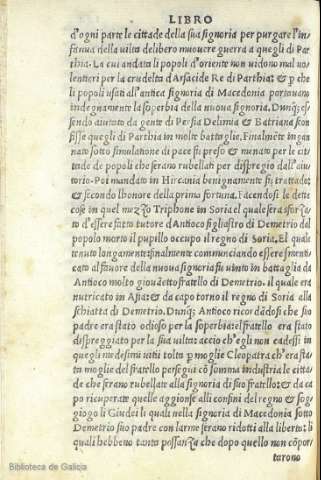 LIBRO
d'ogni parte le cittade della sua signoria per purgare l'in
famia della viltà delibero muovere guerra a quegli di Par
thia. La cui andata li popoli d'oriente non vidono mal vo
lentieri per la crudelta d'Arsacide Re di Parthia: & ꝑ che
li popoli usati all'antica signoria di Macedonia portavano
indegnamente la soperbia della nuova signoria. Dunq; es
sendo aiutato da gente di Persia Delimia & Batriana scon
fisse quegli di Parthia in molte battaglie. Finalmẽte in gan
nato sotto simulatione di pace fu preso & menato per le cit
tade de popoli che serano rubellati per dispregio dall'aiu
torio. Poi mandato in Hircania benignamente fu trattado;
& secondo lhonore della prima fortuna. Facendosi le dette
cose in quel mezzo Triphone in Soria el quale sera sforza
to d'essere fatto tutore d'Antioco figliastro di Demetrio dal
popolo morto il pupillo occupo il regno di Soria. El quale
tenuto longamente finalmente communciando essere menti
cato al favore della nuova signoria fu vinto in battaglia da
Antioco molto giovẽetto fratello di Demetrio. il quale era
nutricato in Asia: & da capo torno il regno di Soria alla
schiatta di Demetrio. Dunq; Antioco ricordãdosi che suo
padre era stato odioso per la soperbia: el fratello era stato
dispreggiato per la sua viltà: accio ch'egli non cadessi in
quegli medesimi vitii tolta ꝑ moglie Cleopatra ch'era sta
ta moglie del fratello persegia cõ somma industria le citta
de che serano rubellate alla signoria di suo fratello: & da ca
po ricuperate quelle aggionse alli confini del regno & sog
giogo li Giudei li quali nella signoria di Macedonia sotto
Demetrio suo padre con larme serano ridotti alla liberta: li
quali hebbeno tanto possanza che dopo quello non cõpor
tarono
Biblioteca de Galicia